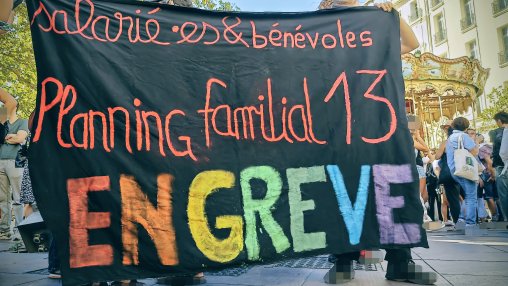 salarié·es & bénévoles
Planning familial 13
EN GREVE